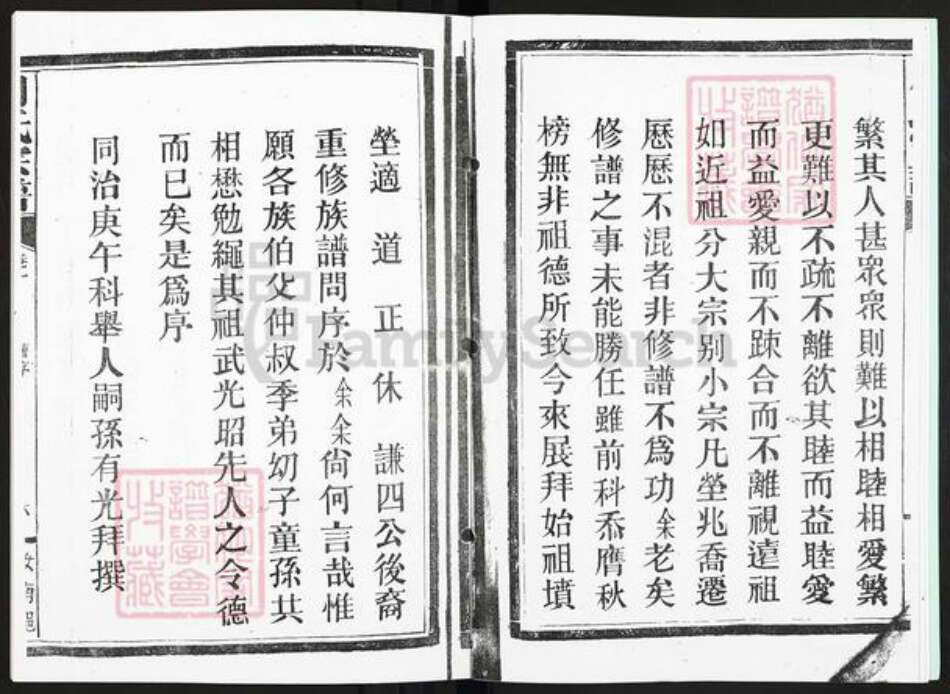 繁其人甚眾衆則難以相睦相愛繁
更難以不疏不離欲其睦而益睦愛
而益愛親而不踈合而不離視遠祖
如近祖分大宗别小宗凡塋兆喬遷
歷歷不混者非修譜不爲功余老矣
修譜之事未能勝任雖前科忝膺秋
榜無非祖德所致今來展拜始祖墳
塋適道正休謙四公後裔
重修族譜問序於余余尙何言哉惟
願各族伯父仲叔季弟幼子童孫共
相懋勉繩其祖武光昭先人之令德
而已矣是爲序
同治庚午科舉人嗣孫有光拜撰
FamilySearch